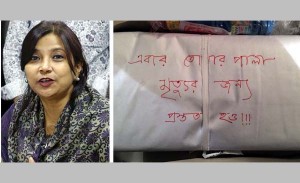 এবার তোর পালা
মৃত্যুর জন্য
প্রস্তুত হও!!!